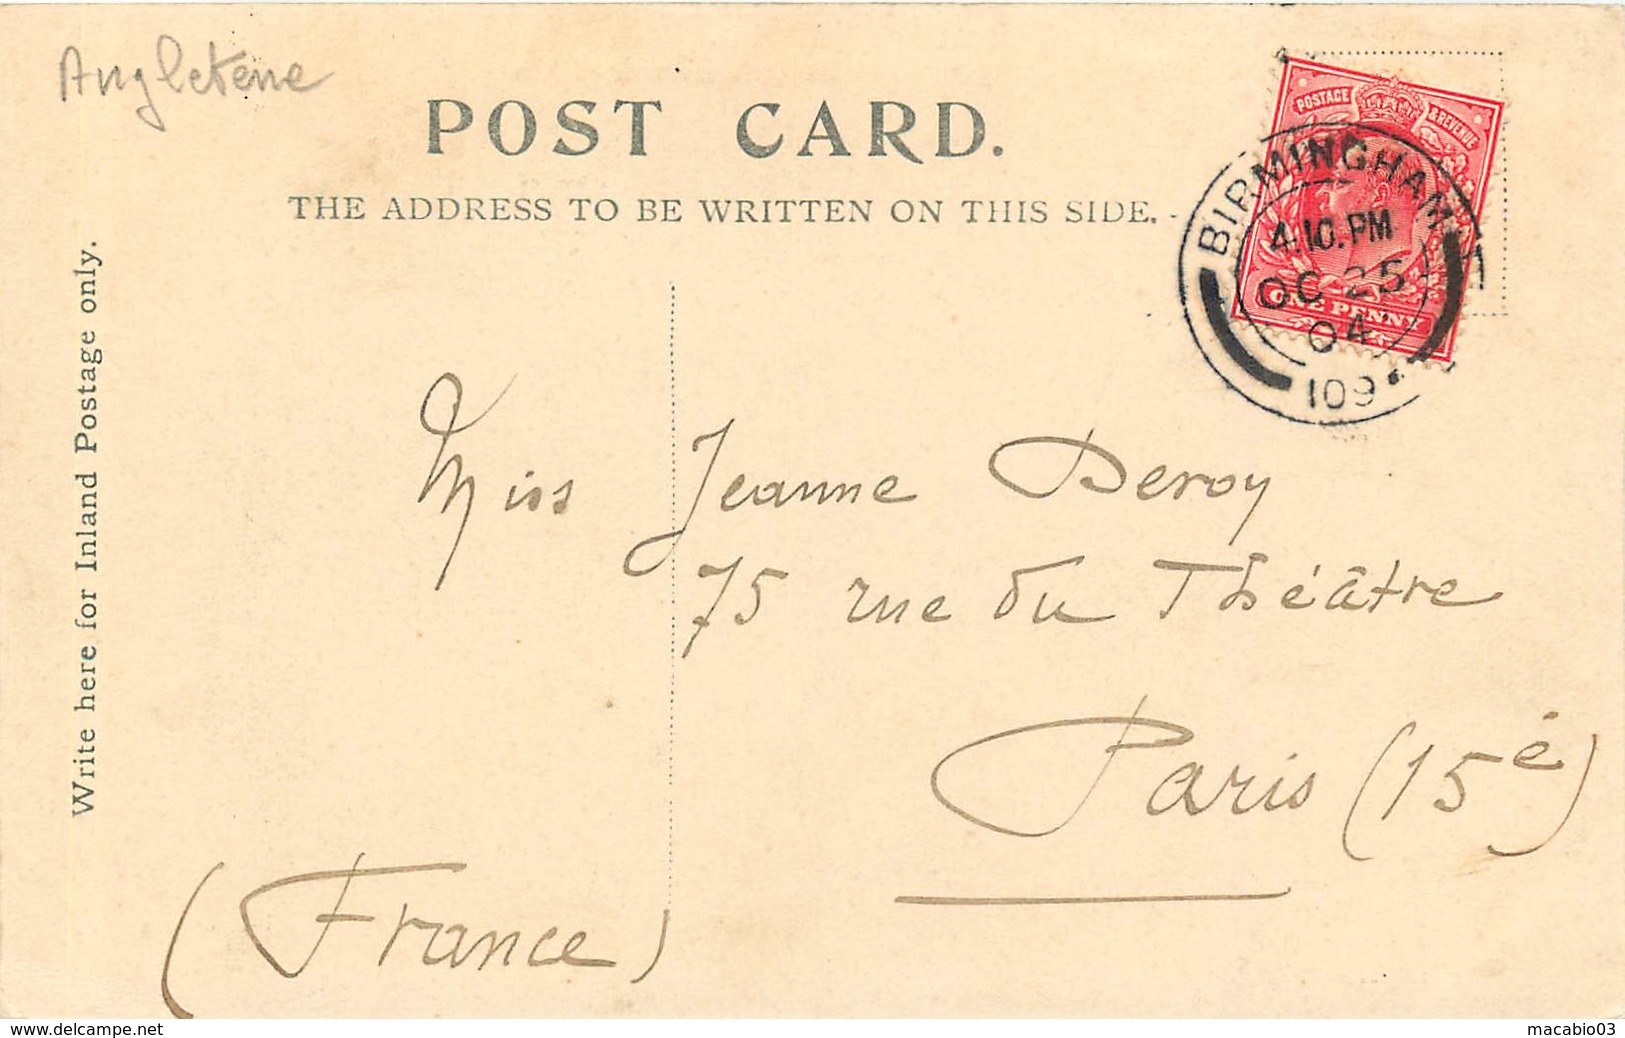 Angleterre
POST CARD.
THE ADDRESS TO BE WRITTEN ON THIS SIDE.
POSTAGE & REVENUE
BIRMINGHAM
4.10.PM
OC 25
04
ONE PENNY
109
Write here for Inland Postage only.
Miss Jeanne Deroy
75 rue du Théâtre
Paris (15è)
(France)
www.delcampe.net
macabio03